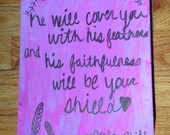 he will cover you
with his feathers
and his faithfulness
will be your
shield